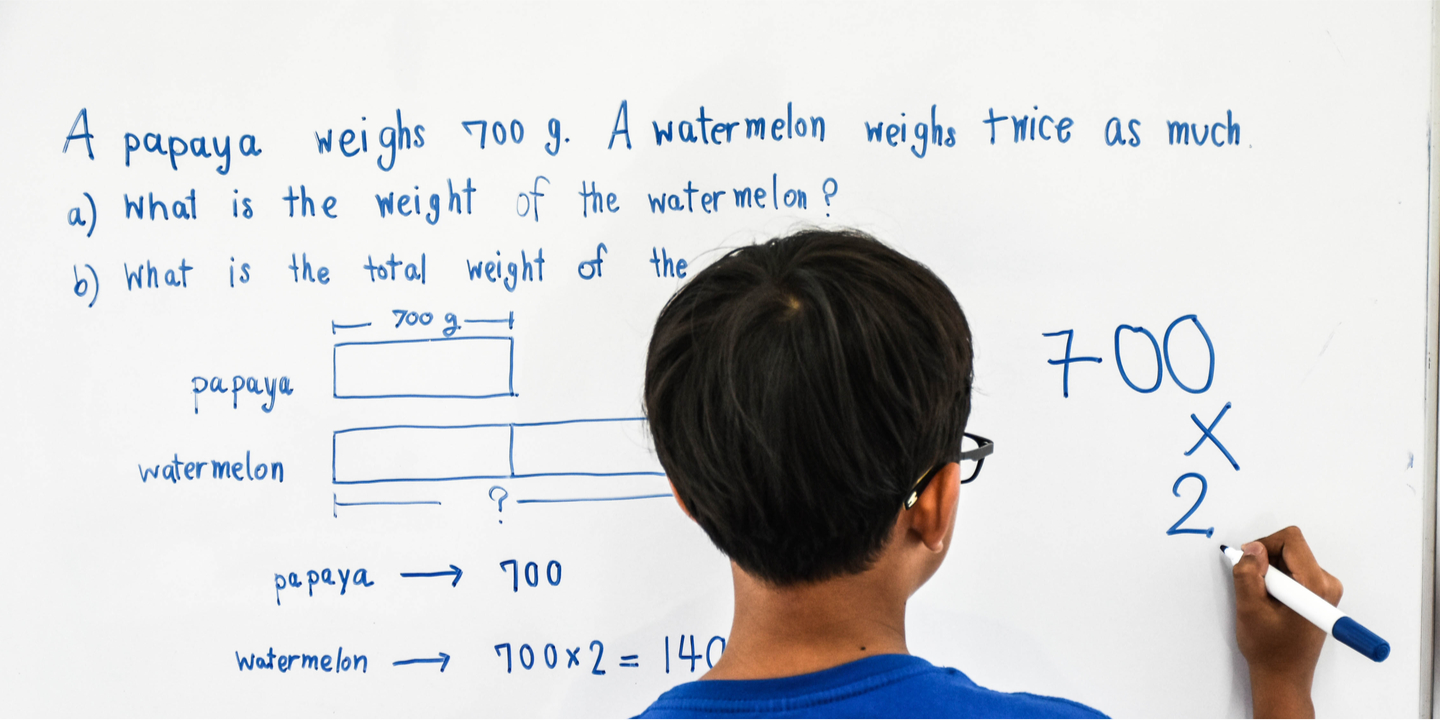 A papaya weighs 700 g. A watermelon weighs twice as much.
a) What is the weight of the watermelon?
b) What is the total weight of the
700 g.
papaya
watermelon
?
papaya → 700
watermelon → 700×2 = 140
700
×
2